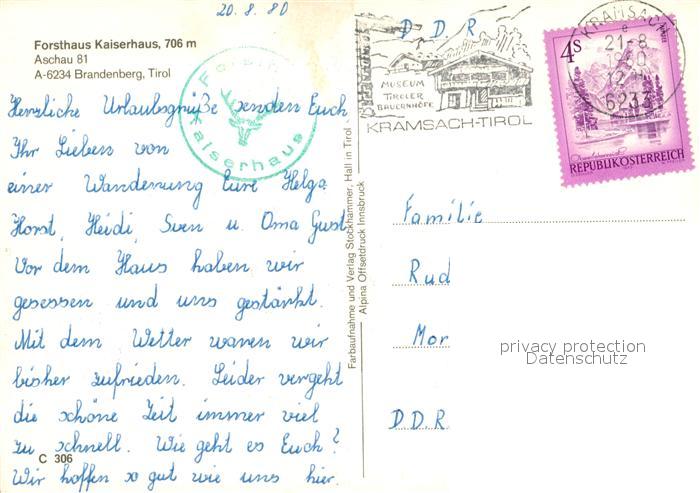 20.8.80
Forsthaus Kaiserhaus, 706 m
Aschau 81
A-6234 Brandenberg, Tirol
Herzliche Urlaubsgrüße senden Euch
Ihr Lieben von
einer Wanderung Eure Helga
Horst, Heidi, Sven u. Oma Gust
Vor dem Haus haben wir
gesessen und uns gestärkt.
Mit dem Wetter waren wir
bisher zufrieden. Leider vergeht
die schöne Zeit immer viel
zu schnell. Wie geht es Euch?
C 306
Wir hoffen so gut wie uns hier.
Kaiserhaus
Farbaufnahme und Verlag Stockhammer, Hall in Tirol
Alpina Offsetdruck Innsbruck
DDR
MUSEUM
TIROLER
BAUERNHÖFE
KRAMSACH-TIROL
KRAMSACH
21-8
1980
6233
4S
REPUBLIK ÖSTERREICH
Familie
Rud
Mor
DDR.
privacy protection
Datenschutz